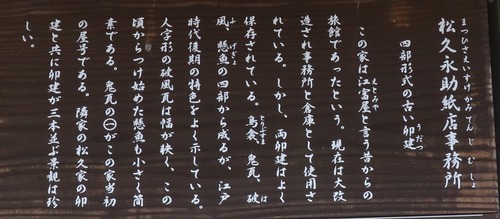 まつひさえいすけかみてんじむしょ
松久永助紙店事務所
四部形式の古い卯建
うだつ
この家は江富屋と言う昔からの
えとみや
旅館であったという。現在は大改
造され事務所と倉庫として使用さ
れている。しかし、両卯建はよく
保存されている。鳥衾、鬼瓦、破
とりぶすま は
風、懸魚の四部から成るが、江戸
ふ げぎょ
時代後期の特色をよく示している。
人字形の破風瓦は幅が狭く、この
頃からつけ始めた懸魚も小さく簡
素である。鬼瓦の㊀がこの家当初
の屋号である。隣家の松久家の卯
建と共に卯建が三本並ぶ景観は珍
しい。